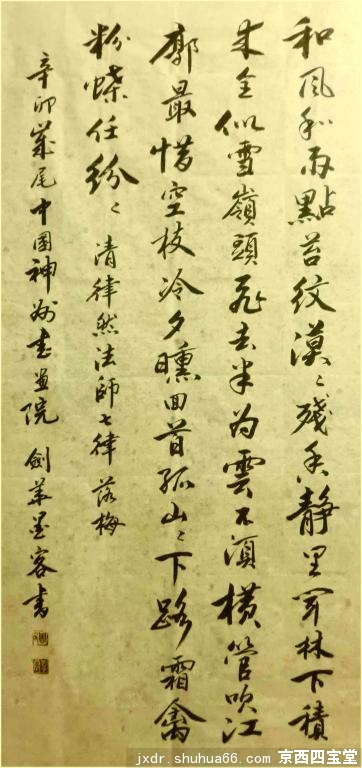 和風和雨點苔紋漠〻殘香靜里聞林下積
來全似雪嶺頭飛去半為雲不須橫管吹江
郭最惜空枝冷夕曛回首孤山〻下路霜禽
粉蝶任紛〻清律然法師七律落梅
辛卯歲尾中國神州書畫院劍華墨客書
jxdr.shuhua66.com 京西四宝堂